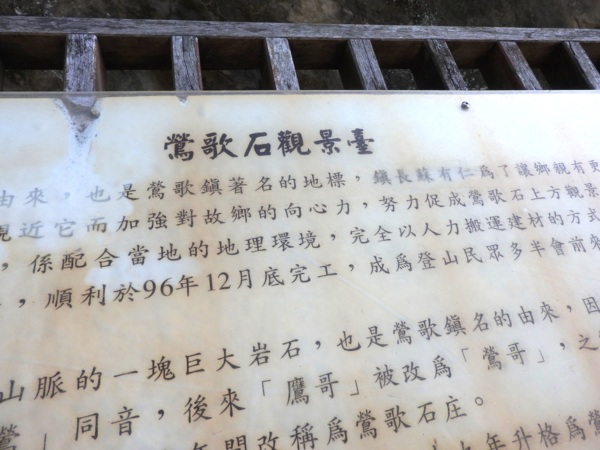 鶯歌石觀景臺
由來，也是鶯歌鎮著名的地標，鎮長蘇有仁為了讓鄉親有更
近它而加強對故鄉的向心力，努力促成鶯歌石上方觀景
，係配合當地的地理環境，完全以人力搬運建材的方式
，順利於96年12月底完工，成為登山民眾多半會前來
山脈的一塊巨大岩石，也是鶯歌鎮名的由來，因
」同音，後來「鷹哥」被改為「鶯哥」，之
改稱為鶯歌石庄。
年升格為鶯